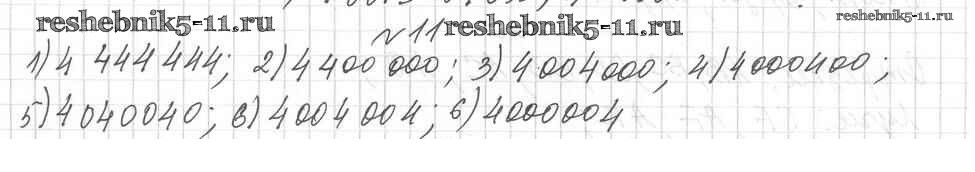 reshebnik5-11.ru
№11 reshebnik5-11.ru
reshebnik5-11.ru
1) 4 444 444; 2) 4 400 000; 3) 4004000; 4) 4000400;
5) 4040040; 6) 4004004; 6) 4000004